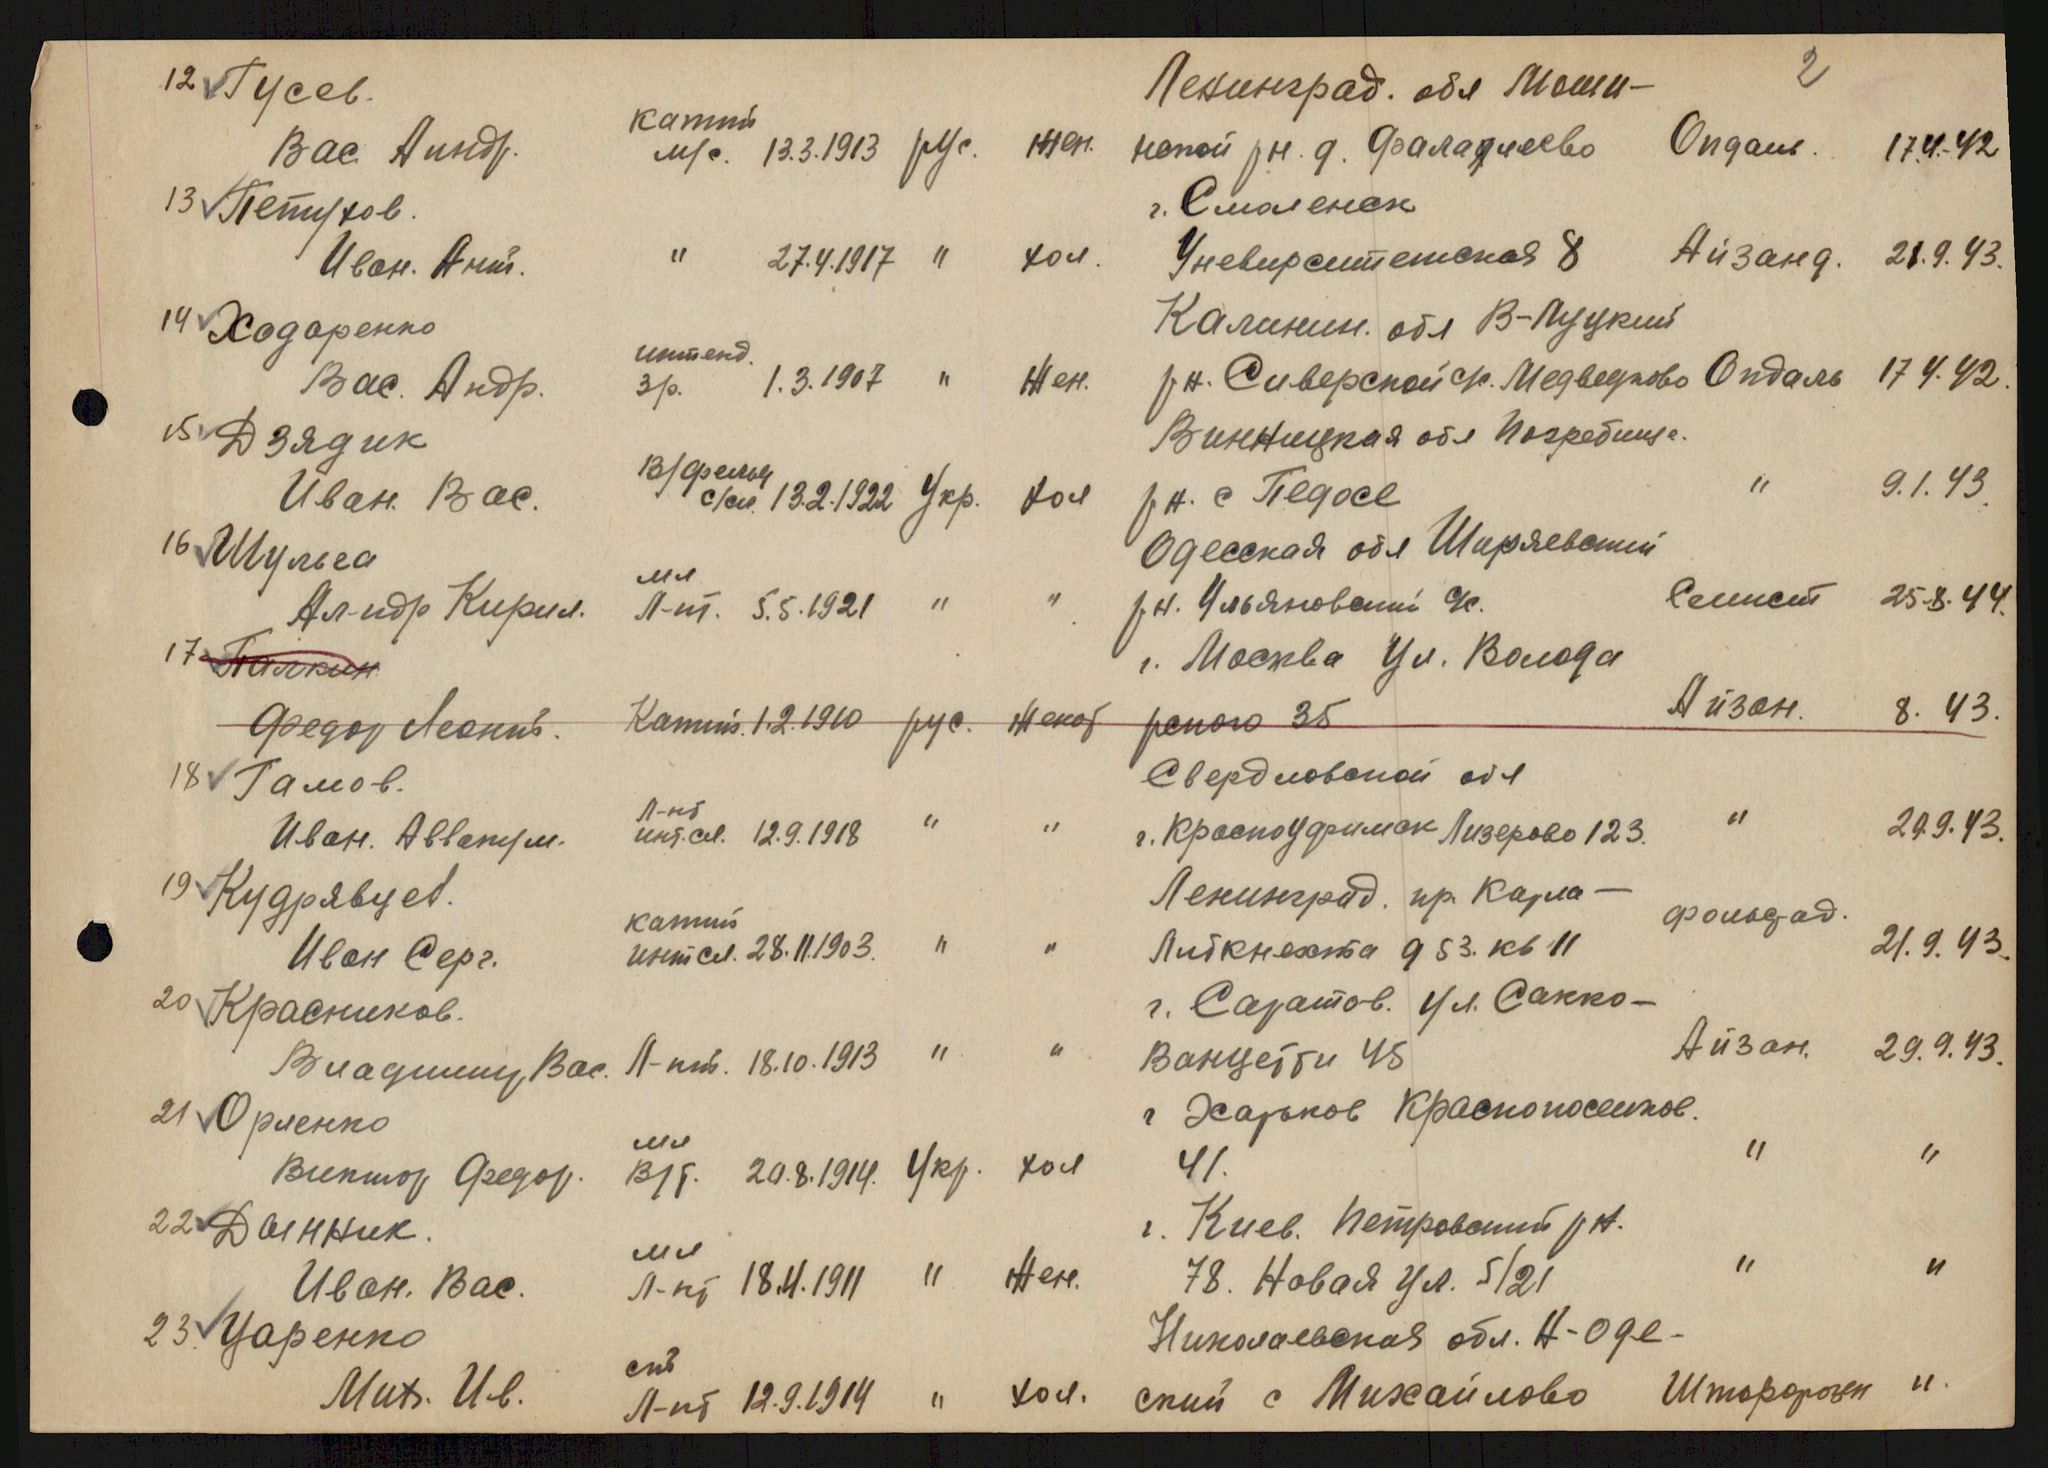 2
12 Гусев. Ленинград. обл Моши-
Вас. Андр. капит м/с. 13.3.1913 рус. жен. нской рн. д. Фаладлеево Опдаль. 17.4.-42
13 Петухов. г. Смоленск
Иван. Ант. " 27.4.1917 " хол. Уневирситетская 8 Айзанд. 21.9.43.
14 Ходоренко Калинин. обл В-Луцкий
Вас. Андр. интенд. 3р. 1.3.1907 " Жен. рн. Сиверской с/с. Медведково Опдаль 17 4.42.
15 Дзядик Винницкая обл Погребище.
Иван. Вас. В/фельд с/сл. 13.2.1922 Укр. хол рн. с Педосе " 9.1.43.
16 Шульга Одесская обл Ширяевский
Ал-ндр Кирил. мл Л-нт. 5.5.1921 " " рн. Ульяновский с/с. 25.8.44.
17 Палкин г. Москва Ул. Волода
Федор Леонт. Капит. 1.2.1910 рус. женат рского 35 Айзан. 8. 43.
18 Гамов. Свердловской обл
Иван. Аввакум. Л-нт инт.сл. 12.9.1918 " " г. Красноуфимск Лизерово 123. " 29.9.43.
19 Кудрявцев. Ленинград. пр. Карла-
Иван Серг. капит интсл. 28.11.1903. " " Либкнехта д 53. кв 11 21.9.43.
20 Красников. г. Саратов. ул. Сакко-
Владимир Вас. Л-нт. 18.10.1913 " " Ванцетти 45 Айзан. 29.9.43.
21 Орленко г Харьков Краснопоселков.
Виктор Федор. мл В/т. 20.8.1914. Укр. хол 41. " "
22 Дынник. г. Киев. Петровский рн.
Иван. Вас. мл Л-нт 18.4.1911 " Жен. 78. Новая ул. 5/21 " "
23. Царенко Николаевская обл. Н-Оде-
Мих. Ив. ст Л-нт 12.9.1914 " хол. ский с Михайлово "